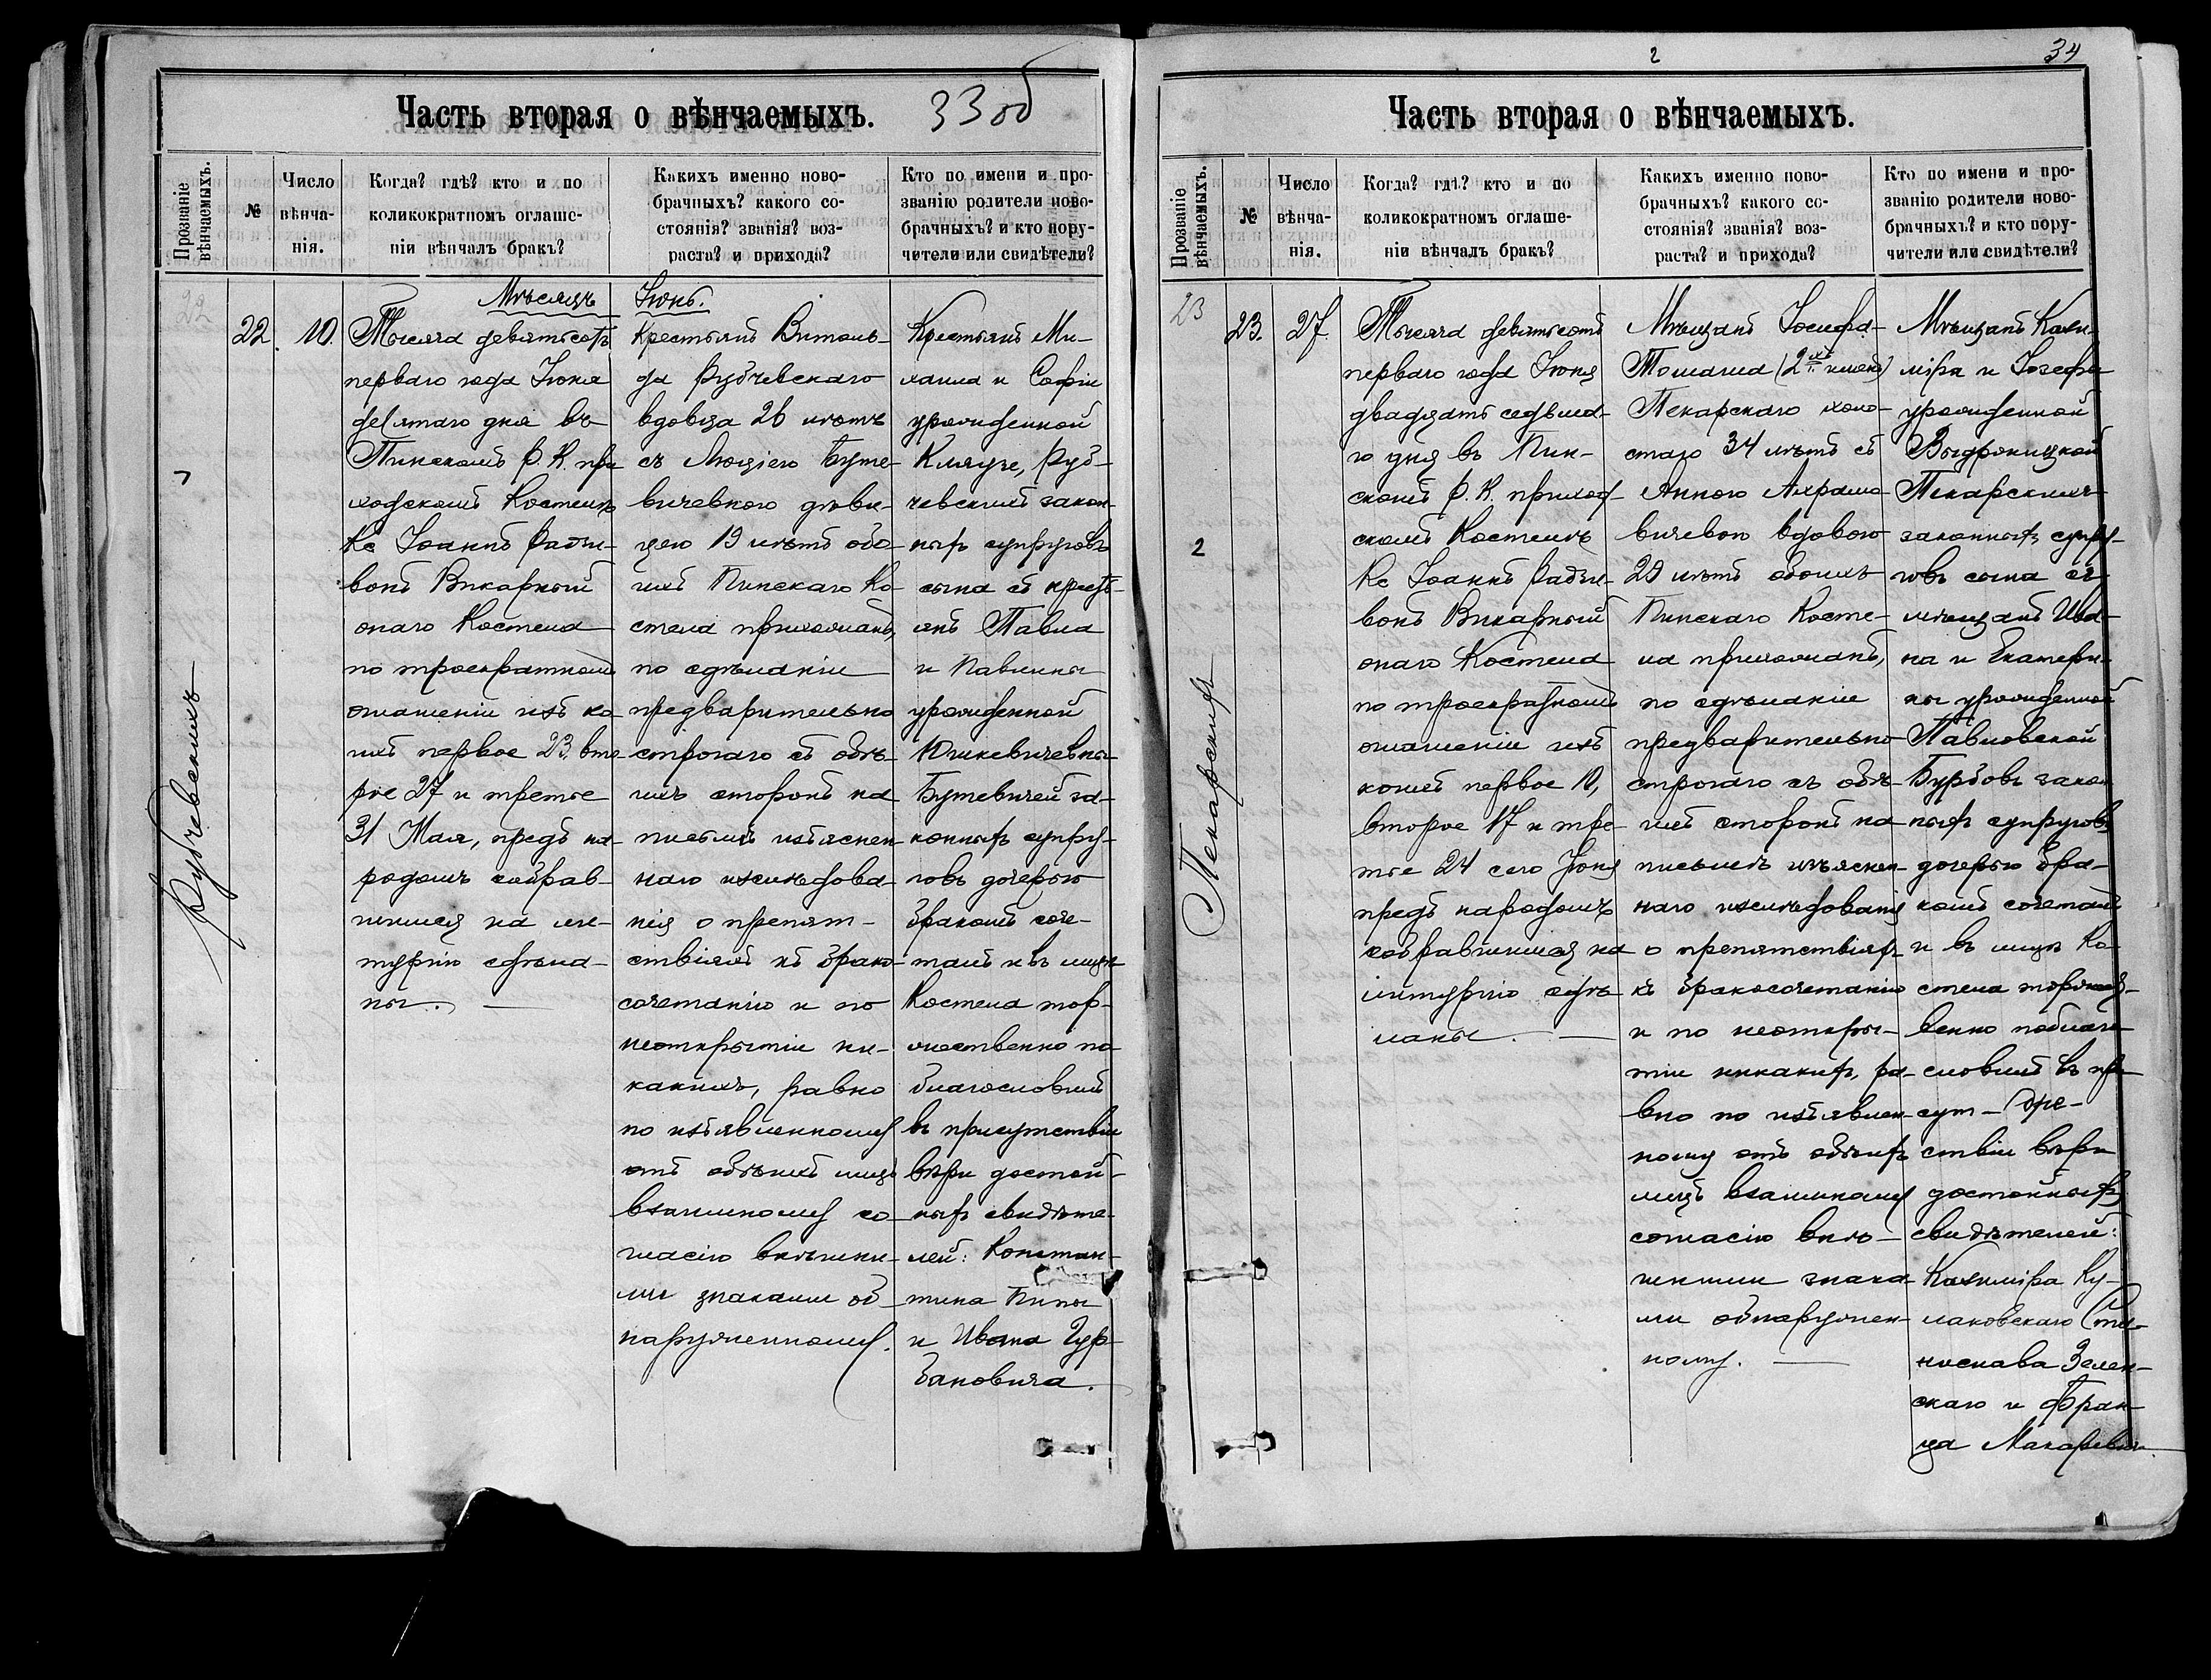 Часть вторая о вѣнчаемыхъ.
33 об
Прозваніе
вѣнчаемыхъ.
№
Число
вѣнча-
нія.
Когда? гдѣ? кто и по
коликократномъ оглаше-
ніи вѣнчалъ бракъ?
Какихъ именно ново-
брачныхъ? какого со-
стоянія? званія? воз-
раста? и прихода?
Кто по имени и про-
званію родители ново-
брачныхъ? и кто пору-
чители или свидѣтели?
Мѣсяцъ Іюнь.
22
Рубчевскихъ
22.
10.
Тысяча девятьсотъ
перваго года Іюня
десятаго дня въ
Пинскомъ Р. К. при
ходскомъ Костелѣ
Кс Іоаннъ
вонъ Викарный
онаго Костела
по троекратномъ
оглашеніи изъ ко
ихъ первое 23, вто
рое 27 и третье
31 Мая, предъ на-
родомъ собрав-
шимся на ли-
тургію сдѣла-
ны. —
Крестьянъ Витоль-
да Рубчевскаго
вдовца 26 лѣтъ
съ Люціею Буте-
вичевною дѣви-
цею 19 лѣтъ обо-
ихъ Пинскаго Ко-
стела прихожанъ,
по сдѣланіи
предварительно
строгаго съ обѣ-
ихъ сторонъ на
письмѣ изъяснен-
наго изслѣдова-
нія о препят-
ствіяхъ къ брако-
сочетанію и по
неоткрытіи ни-
какихъ, равно
по изъявленному
отъ обѣихъ лицъ
взаимному со-
гласію внѣшни-
ми знаками об-
наруженному.
Крестьянъ Ми-
хаила и Софіи
урожденной
Кляузе, Руб-
чевскихъ закон-
ныхъ супруговъ
сына съ крестъ-
янъ Павла
и Павлины
урожденной
Бутевичей за-
конныхъ супру-
говъ дочерью
бракомъ соче-
талъ и въ лицѣ
Костела тор-
жественно по
благословилъ
въ присутствіи
вѣры достой-
ныхъ свидѣте-
лей: Констан-
тина
и Ивана Гур-
бановича.
2
34
Часть вторая о вѣнчаемыхъ.
Прозваніе
вѣнчаемыхъ.
№
Число
вѣнча-
нія.
Когда? гдѣ? кто и по
коликократномъ оглаше-
ніи вѣнчалъ бракъ?
Какихъ именно ново-
брачныхъ? какого со-
стоянія? званія? воз-
раста? и прихода?
Кто по имени и про-
званію родители ново-
брачныхъ? и кто пору-
чители или свидѣтели?
23
2
Пекарскихъ
23.
27.
Тысяча девятьсотъ
перваго года Іюня
двадцать седьма-
го дня въ Пин-
скомъ Р. К. приход-
скомъ Костелѣ
Кс Іоаннъ
вонъ Викарный
онаго Костела
по троекратномъ
оглашеніи изъ
коихъ первое 10,
второе 17 и тре-
тье 24 сего Іюня
предъ народомъ
собравшимся на
литургію сдѣ-
ланы. —
Мѣщанъ Іосифа-
Томаша (2хъ именъ)
Пекарскаго холо-
стаго 34 лѣтъ съ
Анною Ахрамо-
вичевою вдовою
29 лѣтъ обоихъ
Пинскаго Косте-
ла прихожанъ,
по сдѣланіи
предварительно
строгаго съ обѣ-
ихъ сторонъ на
письмѣ изъяснен-
наго изслѣдованія
о препятствіяхъ
къ бракосочетанію
и по неоткры-
тіи никакихъ, ра-
вно по изъявлен-
ному отъ обѣихъ
лицъ взаимному
согласію внѣ-
шними знака-
ми обнаружен-
ному. —
Мѣщанъ Кази-
міра и Іозефы
урожденной
Пекарскихъ
законныхъ супру-
говъ сына съ
мѣщанъ Ива-
на и Екатери-
ны урожденной
Павловской
Бурбовъ закон
ныхъ супруговъ
дочерью бра-
комъ сочеталъ
и въ лицѣ Ко-
стела торжест-
венно поблаго-
словилъ въ при
сут-
ствіи вѣры
достойныхъ
свидѣтелей:
Казиміра Ку-
лаковскаго Ста-
нислава Зелен-
скаго и Фран-
ца Макаревича